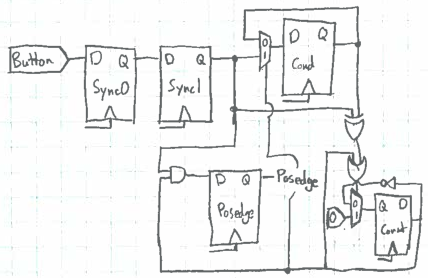 Button
D Q
Sync0
D Q
Sync1
0
1
D Q
Cond
D Q
Posedge
Posedge
0
0
1
Q D
Const